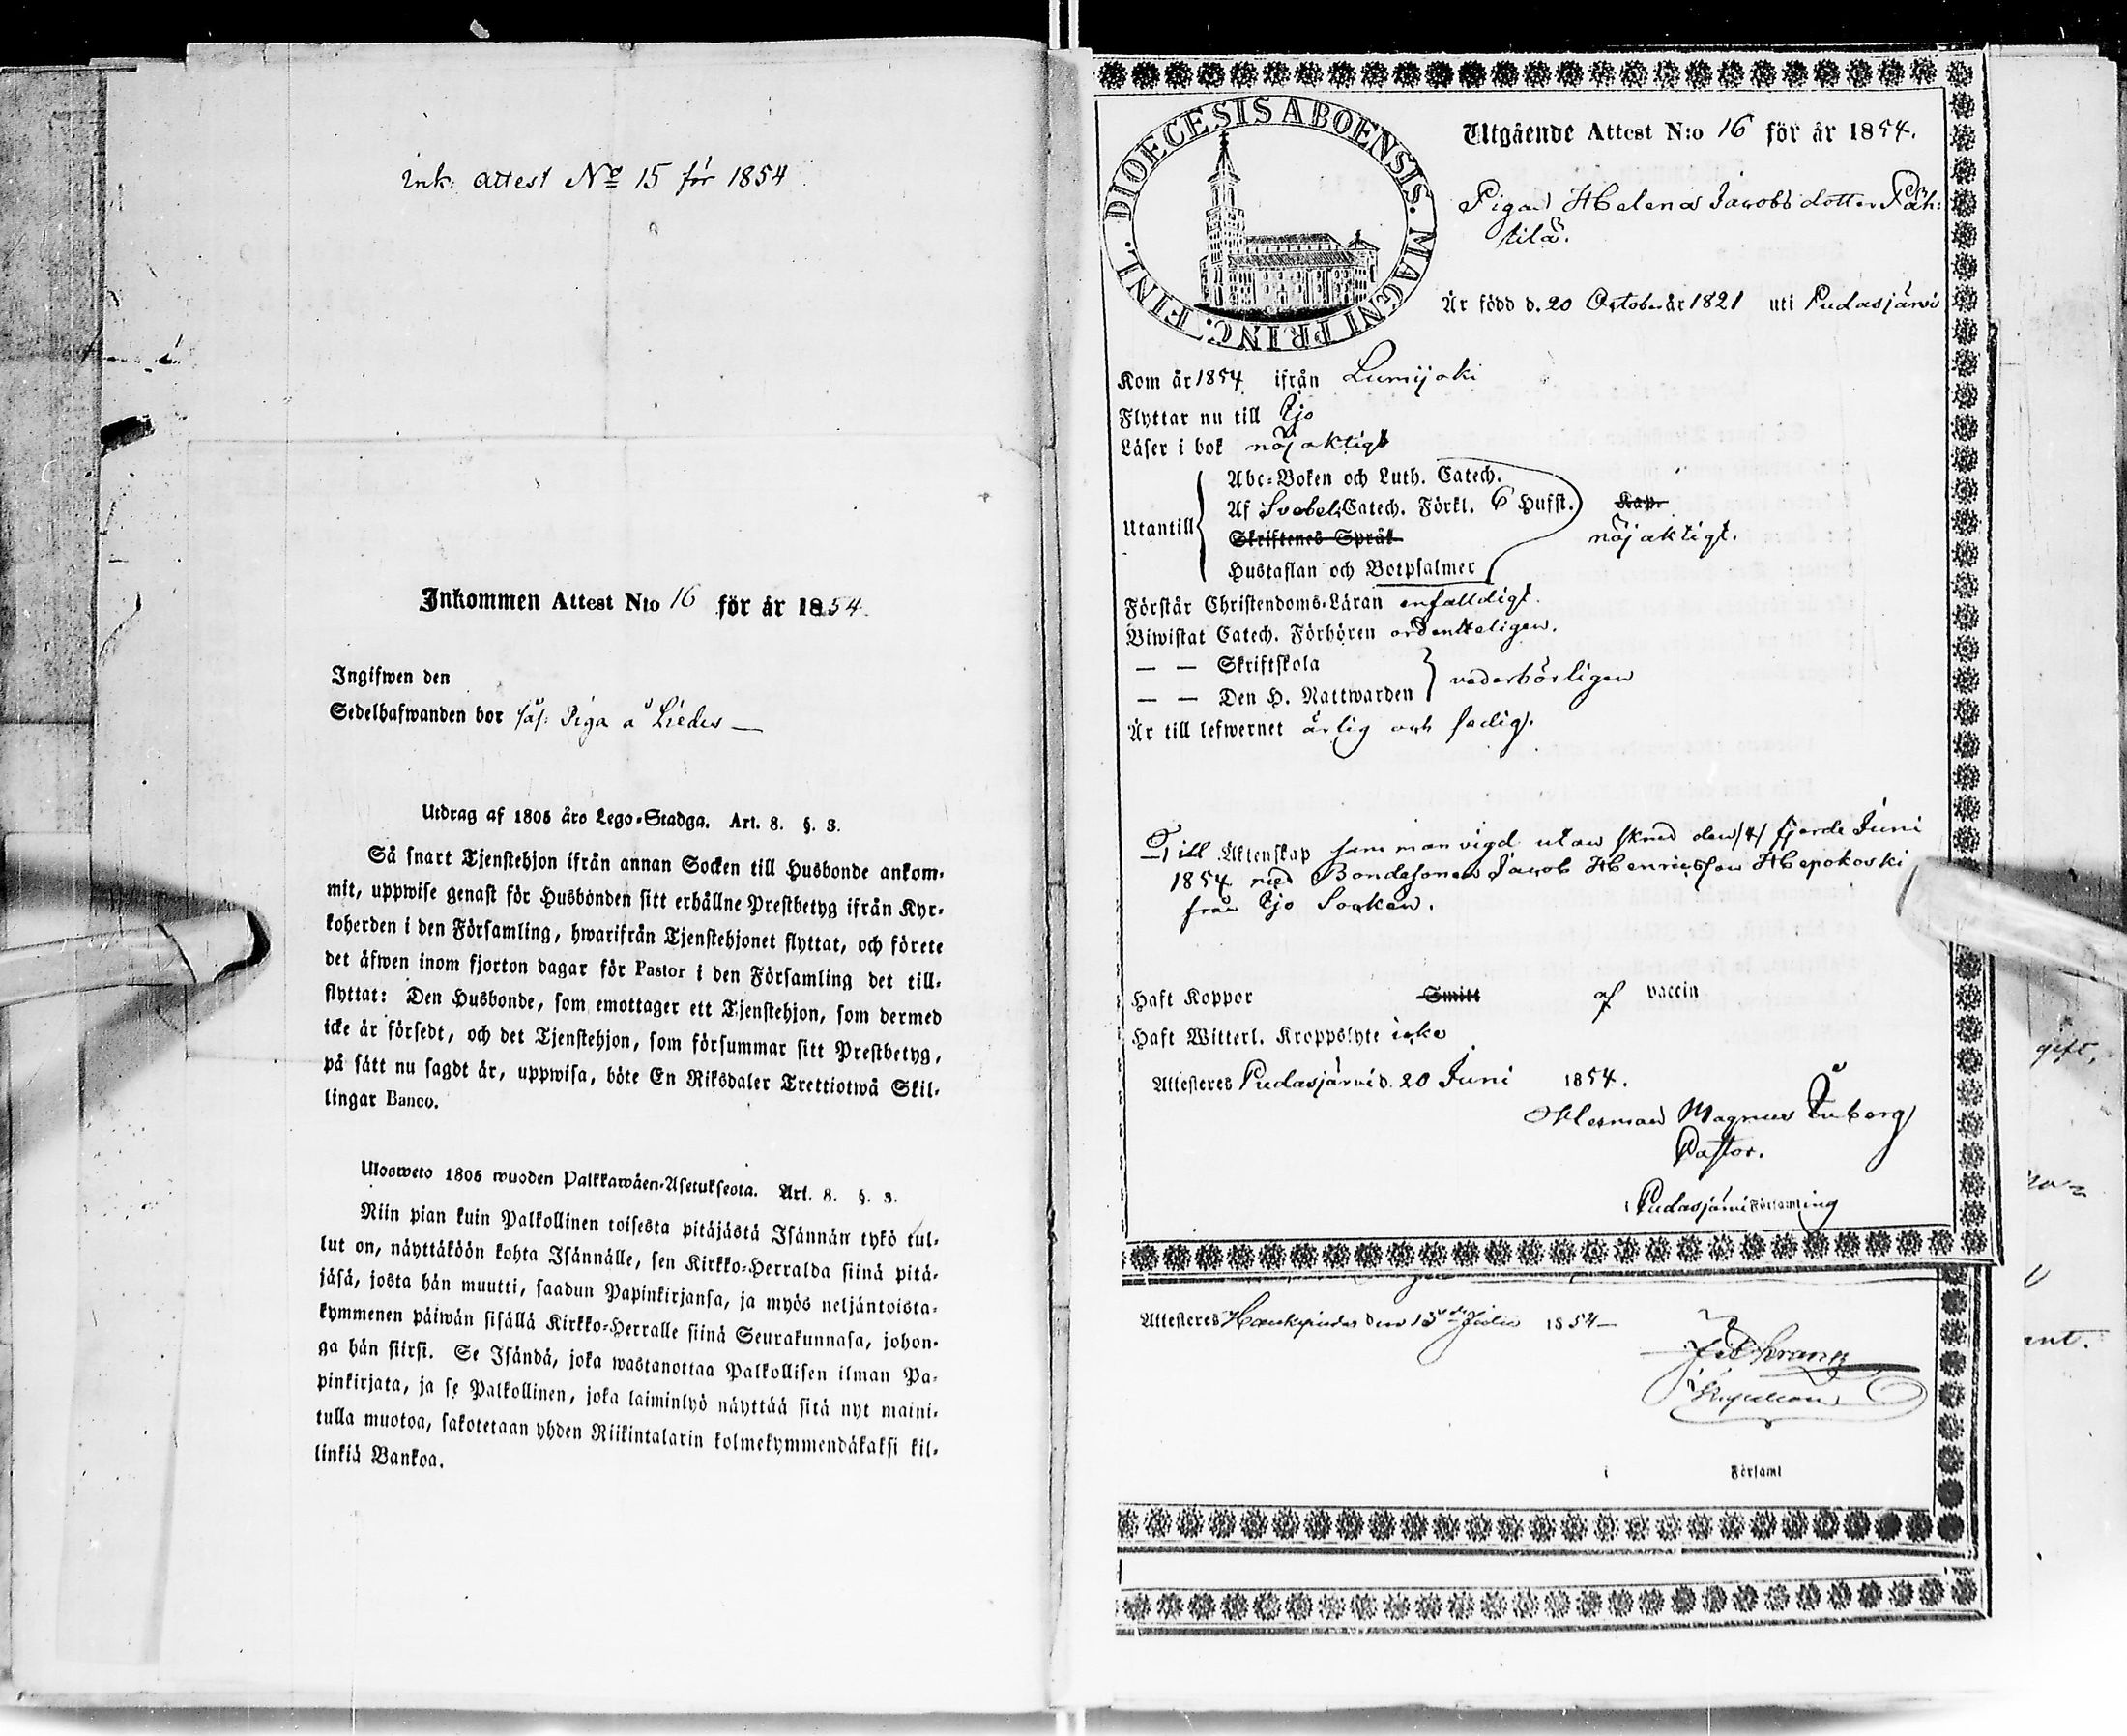 Ink. attest No 15 för 1854
Inkommen Attest N:o 16 för år 1854.
Ingifwen den
Sedelhafwanden bor såf: Piga å Liedes —
Utdrag af 1805 års Lego-Stadga. Art. 8. §. 3.
Så snart Tjenstehjon ifrån annan Socken till Husbonde ankom-
mit, uppwise genast för Husbonden sitt erhållne Prestbetyg ifrån Kyr-
koherden i den Församling, hwarifrån Tjenstehjonet flyttat, och förete
det äfwen inom fjorton dagar för Pastor i den Församling det till-
flyttat: Den Husbonde, som emottager ett Tjenstehjon, som dermed
icke är försedt, och det Tjenstehjon, som försummar sitt Prestbetyg,
på sätt nu sagdt är, uppwisa, böte En Riksdaler Trettiotwå Skil-
lingar Banco.
Ulosweto 1805 wuoden Palkkawäen-Asetuksesta. Art. 8. §. 3.
Niin pian kuin Palkollinen toisesta pitäjästä Isännän tykö tul-
lut on, näyttäköön kohta Isännälle, sen Kirkko-Herralda siinä pitä-
jäsä, josta hän muutti, saadun Papinkirjansa, ja myös neljäntoista-
kymmenen päiwän sisällä Kirkko-Herralle siinä Seurakunnasa, johon-
ga hän siirsi. Se Isändä, joka wastanottaa Palkollisen ilman Pa-
pinkirjata, ja se Palkollinen, joka laiminlyö näyttää sitä nyt maini-
tulla muotoa, sakotetaan yhden Riikintalarin kolmekymmendäkaksi kil-
linkiä Bankoa.
DIOECESIS ABOENSIS. MAGNI PRINC. FINL.
Utgående Attest N:o 16 för år 1854.
Pigan Helena Jacobsdotter Päh-
tilä.
Är född d. 20 October år 1821 uti Pudasjärvi
Kom år 1854 ifrån Lumijoki
Flyttar nu till Ijo
Läser i bok nöjaktigt
Utantill
Abc-Boken och Luth. Catech.
Af Svebel. Catech. Förkl. 6 Hufst. Kap.
Skriftenes Språk nöjaktigt.
Hustaflan och Botpsalmer
Förstår Christendoms-Läran enfalldigt.
Biwistat Catech. Förhören ordenteligen.
— — Skriftskola
— — Den H. Nattwarden vederbörligen
Är till lefwernet ärlig och sedig.
Till Äktenskap sammanvigd utan skud den /4/ fjerde Juni
1854 med Bondesonen Jacob Henricsson Hepokoski
från Ijo Socken.
Haft Koppor Smitt af vaccin
Haft Witterl. Kroppslyte icke
Attesteres Pudasjärvi d. 20 Juni 1854.
Herman Magnus Tuberg
Pastor.
i Pudasjärvi Församling
Attesteres Haukipudas den 15de Julii 1854—
i Församl
gift,